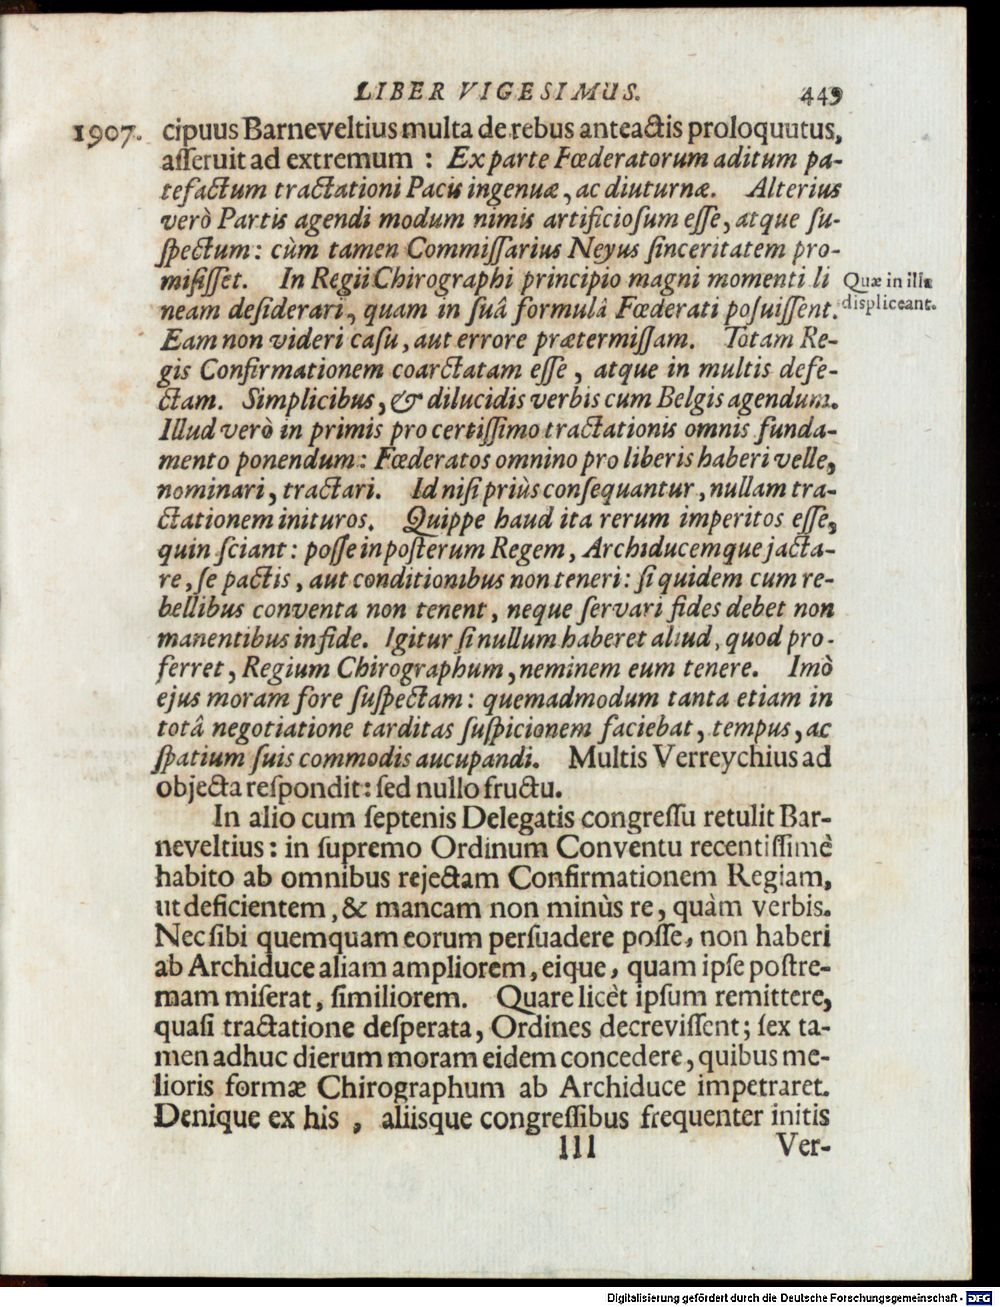 LIBER VIGESIMUS. 449
1907. cipuus Barneveltius multa de rebus anteactis proloquutus,
asseruit ad extremum : Ex parte Fœderatorum aditum pa-
tefactum tractationi Pacis ingenuæ, ac diuturnæ. Alterius
verò Partis agendi modum nimis artificiosum esse, atque su-
spectum: cùm tamen Commissarius Neyus sinceritatem pro-
misisset. In Regii Chirographi principio magni momenti li
Quæ in illa
neam desiderari, quam in suâ formulâ Fœderati posuissent.
displiceant.
Eam non videri casu, aut errore prætermissam. Totam Re-
gis Confirmationem coarctatam esse, atque in multis defe-
ctam. Simplicibus, & dilucidis verbis cum Belgis agendum.
Illud verò in primis pro certissimo tractationis omnis funda-
mento ponendum: Fœderatos omnino pro liberis haberi velle,
nominari, tractari. Id nisi priùs consequantur, nullam tra-
ctationem inituros. Quippe haud ita rerum imperitos esse,
quin sciant: posse in posterum Regem, Archiducemque jacta-
re, se pactis, aut conditionibus non teneri: si quidem cum re-
bellibus conventa non tenent, neque servari fides debet non
manentibus in fide. Igitur si nullum haberet aliud, quod pro-
ferret, Regium Chirographum, neminem eum tenere. Imò
ejus moram fore suspectam: quemadmodum tanta etiam in
totâ negotiatione tarditas suspicionem faciebat, tempus, ac
spatium suis commodis aucupandi. Multis Verreychius ad
objecta respondit: sed nullo fructu.
In alio cum septenis Delegatis congressu retulit Bar-
neveltius: in supremo Ordinum Conventu recentissimè
habito ab omnibus rejectam Confirmationem Regiam,
ut deficientem, & mancam non minùs re, quàm verbis.
Nec sibi quemquam eorum persuadere posse, non haberi
ab Archiduce aliam ampliorem, eique, quam ipse postre-
mam miserat, similiorem. Quare licèt ipsum remittere,
quasi tractatione desperata, Ordines decrevissent; sex ta-
men adhuc dierum moram eidem concedere, quibus me-
lioris formæ Chirographum ab Archiduce impetraret.
Denique ex his, aliisque congressibus frequenter initis
Lll Ver-
Digitalisierung gefördert durch die Deutsche Forschungsgemeinschaft - DFG